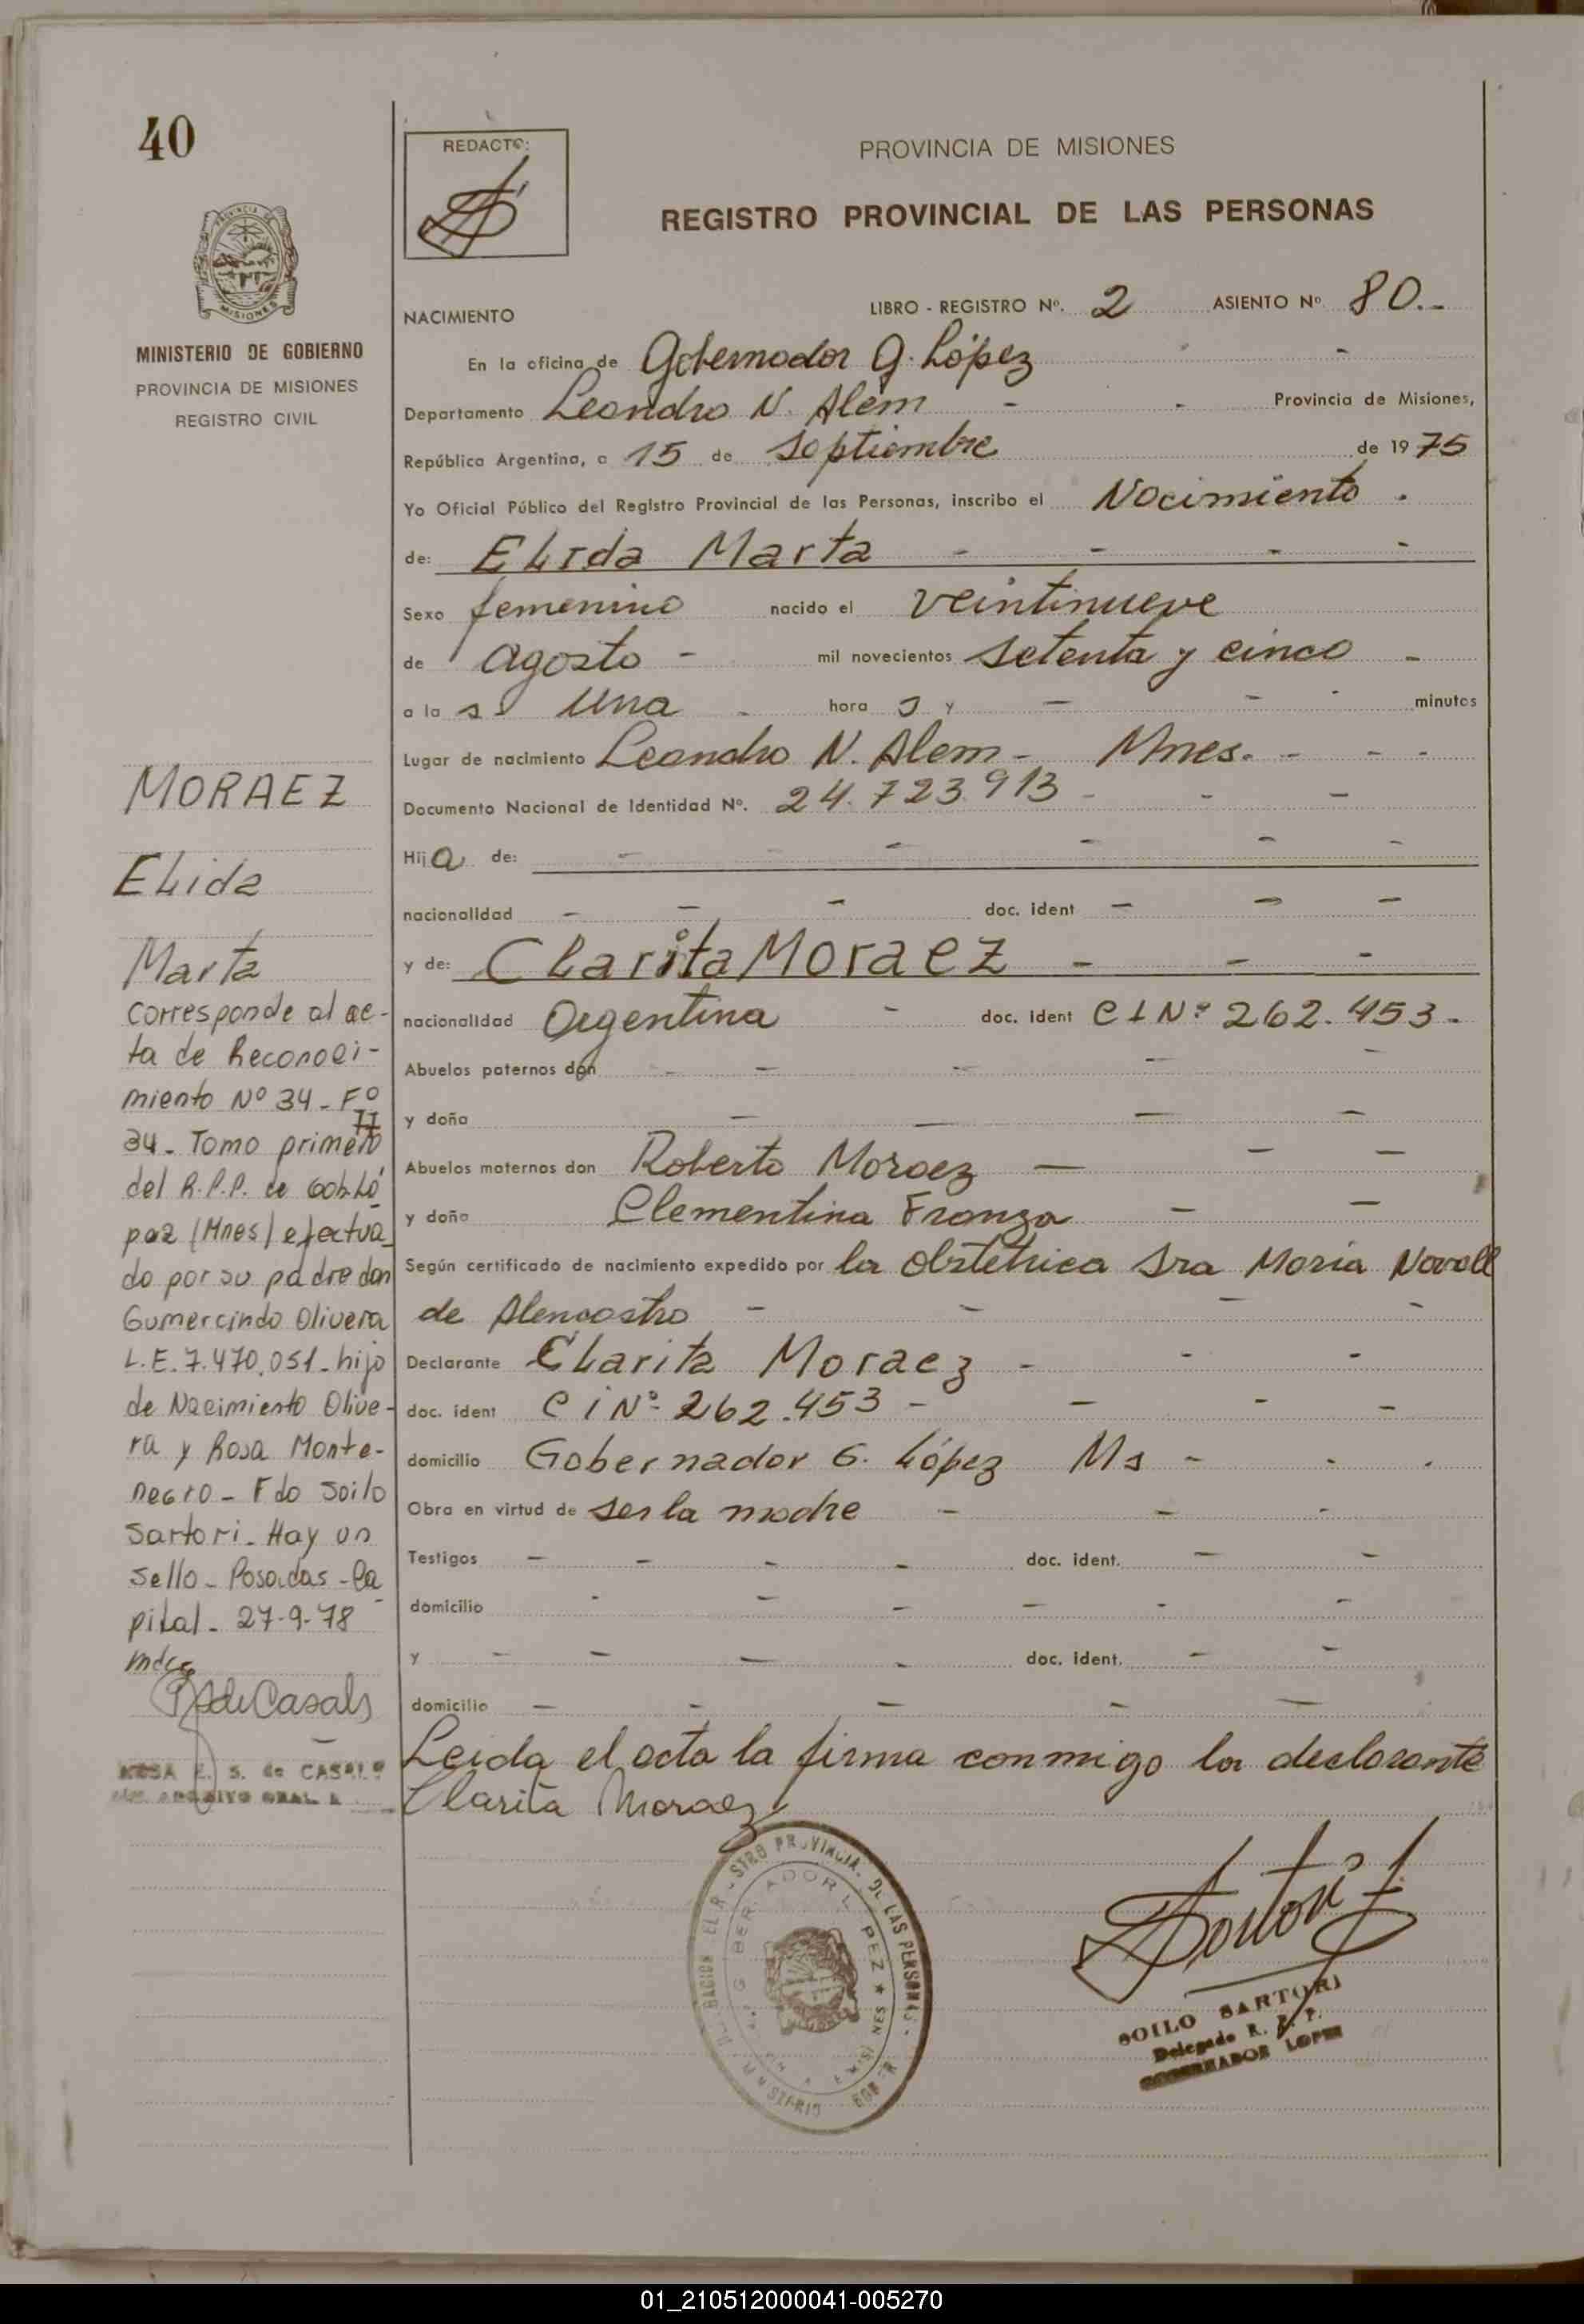 40
MINISTERIO DE GOBIERNO
PROVINCIA DE MISIONES
REGISTRO CIVIL
MORAEZ
ELida
Marta
corresponde al ac-
ta de Reconoci-
miento Nº 34 - Fº
34 - Tomo primero II
del R.P.P. de Gob. Ló
pez (Mnes) efectua_
do por su padre don
Gumercindo Olivera
L.E. 7.470.051 - hijo
de Nacimiento Olive-
ra y Rosa Monte-
negro - Fdo Soilo
Sartori - Hay un
sello - Posadas - Ca
pital - 27-9-78
S. de CASALS
REDACTO:
PROVINCIA DE MISIONES
REGISTRO PROVINCIAL DE LAS PERSONAS
NACIMIENTO LIBRO - REGISTRO Nº. 2 ASIENTO Nº 80.-
En la oficina de Gobernador G. López -
Departamento Leandro N. Alem - - Provincia de Misiones,
República Argentina, a 15 de Septiembre de 1975
Yo Oficial Público del Registro Provincial de las Personas, inscribo el Nacimiento .
de: ELida Marta - - - -
Sexo femenino nacido el veintinueve
de agosto - mil novecientos setenta y cinco -
a la s una - hora s y - - - minutos
Lugar de nacimiento Leandro N. Alem - Mnes. - - -
Documento Nacional de Identidad Nº. 24.723.913 - - -
Hija de: - - - - - -
nacionalidad - - - doc. ident - - -
y de: CLarita Moraez - - -
nacionalidad Argentina - doc. ident C I Nº 262.453 -
Abuelos paternos don - - - - -
y doña - - - -
Abuelos maternos don Roberto Moraez - - -
y doña Clementina Franza - -
Según certificado de nacimiento expedido por la obstetrica Sra Maria
de Alencastro - - - -
Declarante CLarita Moraez - - -
doc. ident C i Nº 262.453 - - - -
domicilio Gobernador G. López Ms - - -
Obra en virtud de ser la madre - - -
Testigos - - - - doc. ident. - -
domicilio - - - - - -
y - - - - doc. ident. - -
domicilio - - - - -
Leida el acta la firma conmigo la declarante
Clarita Moraez
SOILO SARTORI
Delegado R. P. P.
GOBERNADOR LOPEZ
01_210512000041-005270